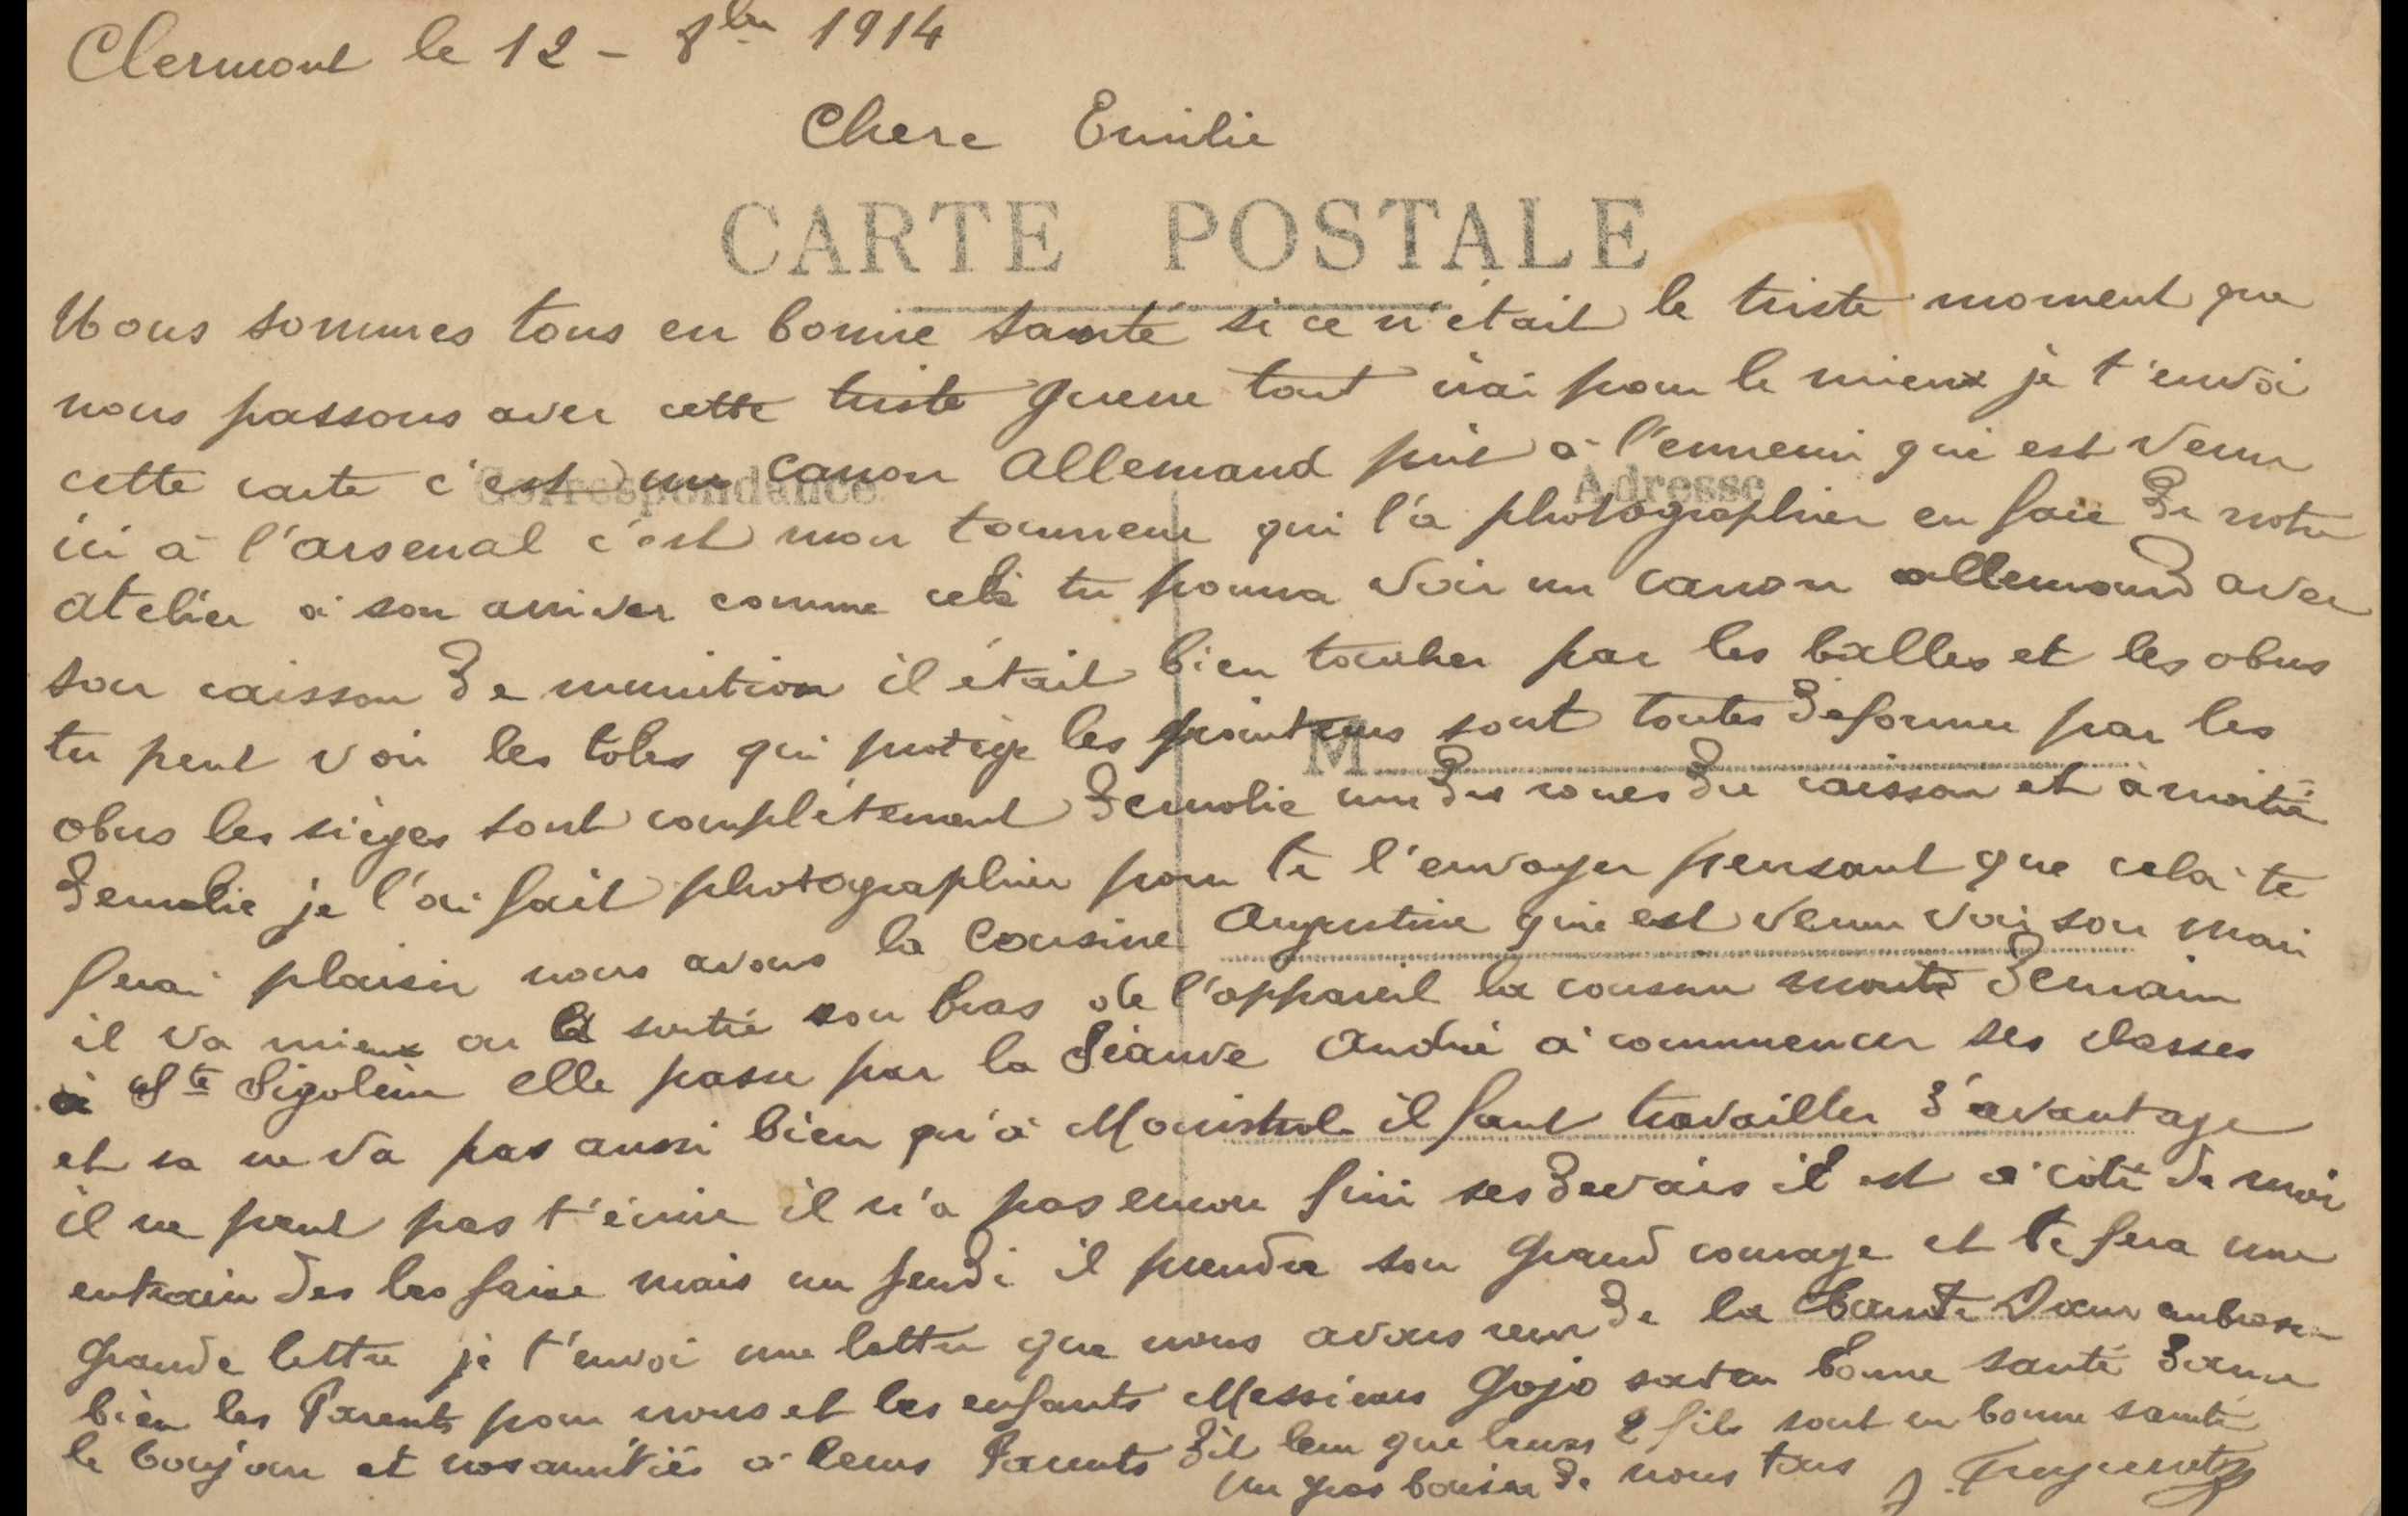 Clermont le 12 - 8bre 1914
Chere Emilie
CARTE POSTALE
Nous sommes tous en bonne santé si ce n'était le triste moment que
nous passons avec cette triste guerre tout vai pour le mieux je t'envoi
Correspondance
Adresse
cette carte c'est un canon Allemand prit à l'ennemi qui est venu
ici à l'arsenal c'est mon tourneur qui l'a photographier en face de notre
atelier a son arriver comme cela tu pourra voir un canon allemand avec
son caisson de munition il était bien toucher par les balles et les obus
tu peut voir les toles qui protège les pointeurs sont toutes deformer par les
M
obus les sièges sont complètement demolie une des roues du caisson et à moitié
demolie je l'ai fait photographier pour te l'envoyer pensant que cela te
ferai plaisir nous avons la Cousine Augustine qui est venu voir son mari
il va mieux on a sortie son bras de l'appareil la cousine monte demain
à Ste Sigolène elle passe par la Séauve André a commencer ses classes
et sa ne va pas aussi bien qu'à Monistrol il faut travailler d'avantage
il ne peut pas t'écrire il n'a pas encore fini ses devoirs il est a coté de moi
entrain des les faire mais un jeudi il prendra son grand courage et te fera une
grande lettre je t'envoi une lettre que nous avons reçu de la tante embrasse
bien les Parents pour nous et les enfants Messieurs Gojo sont en bonne santé donne
le bonjour et nos amitiés a leurs Parents dit leur que leurs 2 fils sont en bonne santé
un gros baiser de nous tous J.